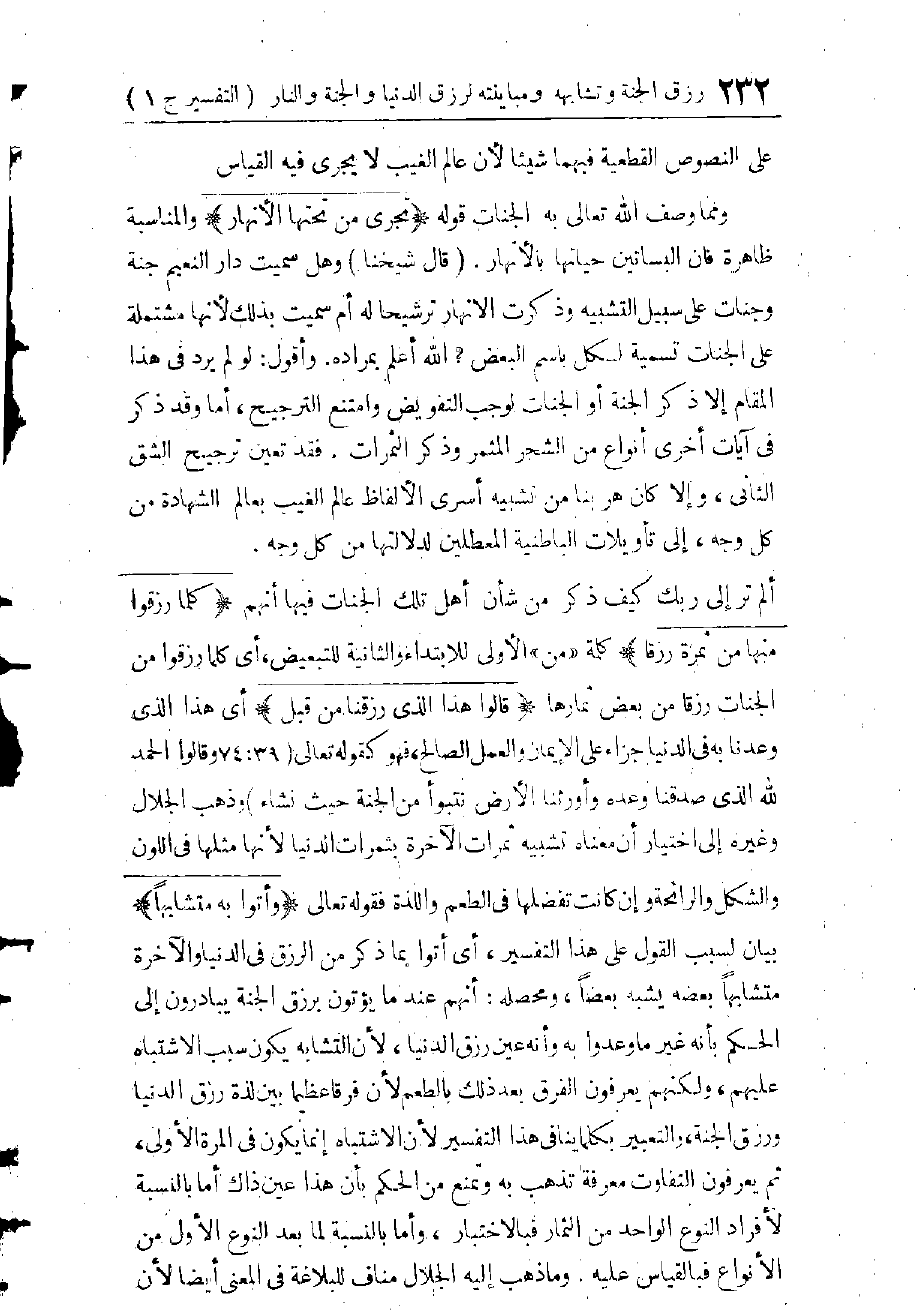 ٢٣٢ رزق الجنة وتشابهه ومباينته لرزق الدنيا والجنة والنار ( التفسير ج ١ )
على النصوص القطعية فيهما شيئا لأن عالم الغيب لا يجرى فيه القياس
ومما وصف الله تعالى به الجنات قوله ﴿تجرى من تحتها الأنهار﴾ والمناسبة
ظاهرة فان البساتين حياتها بالأنهار . ( قال شيخنا ) وهل سميت دار النعيم جنة
وجنات على سبيل التشبيه وذكرت الانهار ترشيحا له أم سميت بذلك لأنها مشتملة
على الجنات تسمية للكل باسم البعض ? الله أعلم بمراده. وأقول: لو لم يرد فى هذا
المقام إلا ذكر الجنة أو الجنات لوجب التفويض وامتنع الترجيح ، أما وقد ذكر
فى آيات أخرى أنواع من الشجر المثمر وذكر الثمرات . فقد تعين ترجيح الشق
الثانى ، وإلا كان هربنا من تشبيه أسرى الألفاظ عالم الغيب بعالم الشهادة من
كل وجه ، إلى تأويلات الباطنية المعطلين لدلالتها من كل وجه .
ألم تر إلى ربك كيف ذكر من شأن أهل تلك الجنات فيها أنهم ﴿ كلما رزقوا
منها من ثمرة رزقا ﴾ كلمة «من» الأولى للابتداء والثانية للتبعيض، أى كلما رزقوا من
الجنات رزقا من بعض ثمارها ﴿ قالوا هذا الذى رزقنا من قبل ﴾ أى هذا الذى
وعدنا به فى الدنيا جزاء على الإيمان والعمل الصالح، فهو كقوله تعالى( ٧٤:٣٩ وقالوا الحمد
لله الذى صدقنا وعده وأورثنا الأرض نتبوأ من الجنة حيث نشاء )وذهب الجلال
وغيره إلى اختيار أن معناه تشبيه ثمرات الآخرة بثمرات الدنيا لأنها مثلها فى اللون
والشكل والرائحة وإن كانت تفضلها فى الطعم واللذة فقوله تعالى ﴿وأتوا به متشابهاً﴾
بيان لسبب القول على هذا التفسير ، أى أتوا بما ذكر من الرزق فى الدنيا والآخرة
متشابهاً بعضه يشبه بعضاً ، ومحصله : أنهم عند ما يؤتون برزق الجنة يبادرون إلى
الحكم بأنه غير ما وعدوا به وأنه عين رزق الدنيا ، لأن التشابه يكون سبب الاشتباه
عليهم ، ولكنهم يعرفون الفرق بعد ذلك بالطعم لأن فرقا عظيما بين لذة رزق الدنيا
ورزق الجنة، والتعبير بكلما ينافى هذا التفسير لأن الاشتباه إنما يكون فى المرة الأولى،
ثم يعرفون التفاوت معرفة تذهب به وتمنع من الحكم بأن هذا عين ذاك أما بالنسبة
لأفراد النوع الواحد من الثمار فبالاختبار ، وأما بالنسبة لما بعد النوع الأول من
الأنواع فبالقياس عليه . وماذهب إليه الجلال مناف للبلاغة فى المعنى أيضا لأن